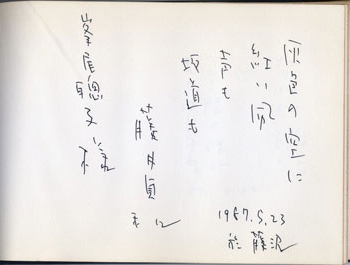 灰色の空に
紅い風
昔も
坂道も
藤井貞和
1987.5.23
於 藤沢
峯尾聰子様